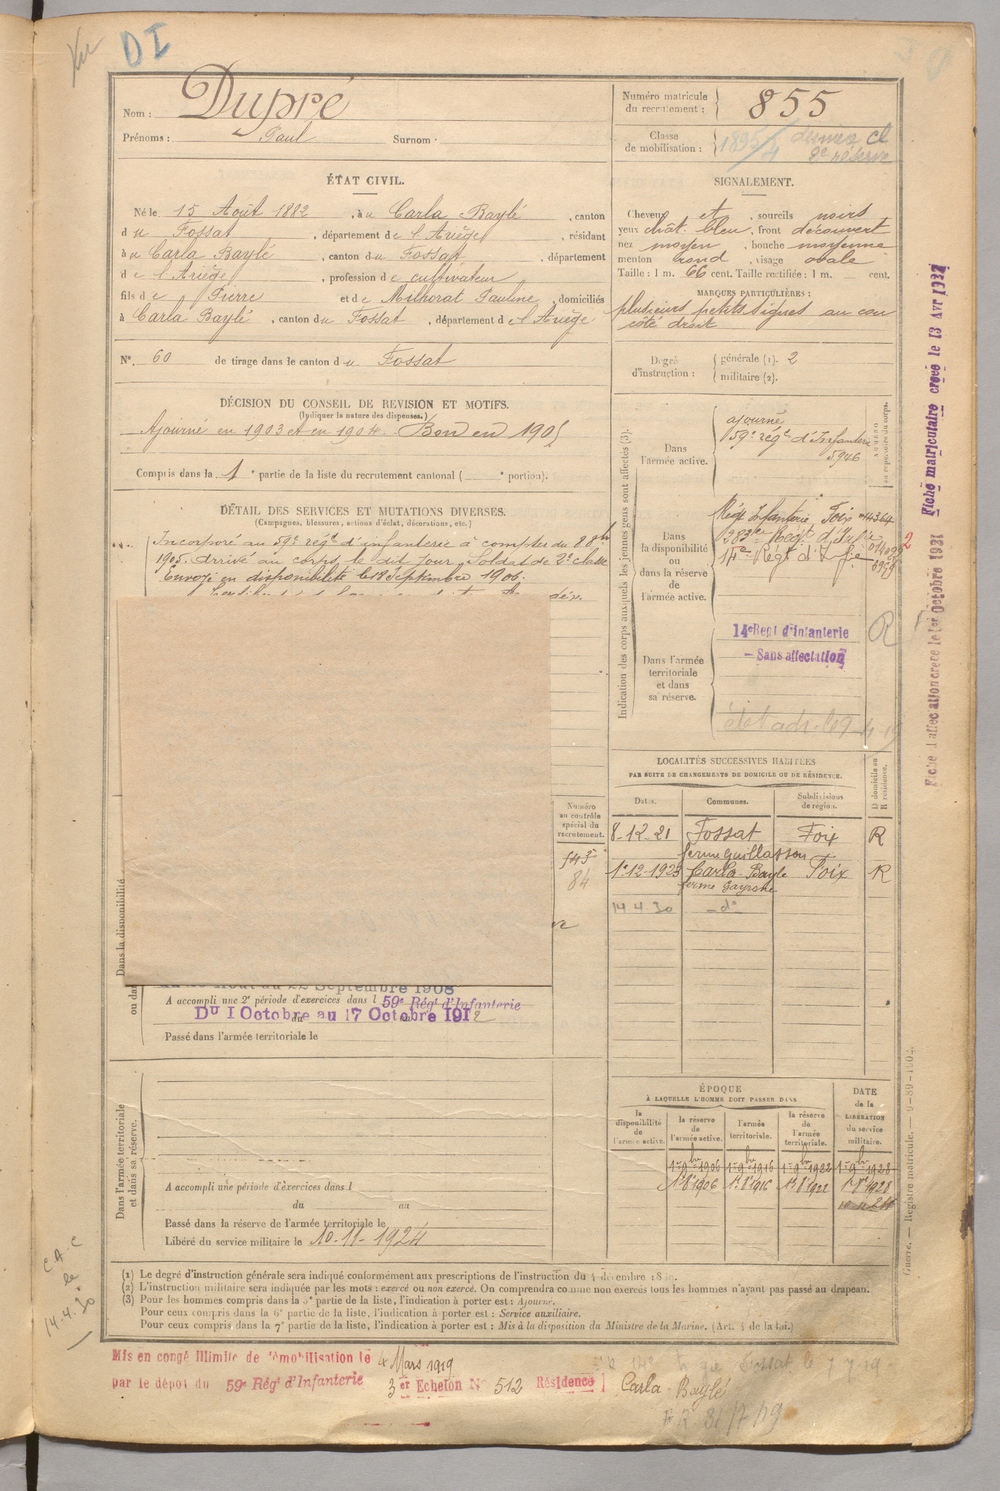 DI
Nom : Dupré
Prénoms : Paul Surnom :
Numéro matricule du recrutement : 855
Classe de mobilisation :
2e réserve
ÉTAT CIVIL.
Né le 15 Août 1882, à u Carla Baylé, canton
d u Fossat, département de l'Ariège, résidant
à u Carla Baylé, canton du Fossat, département
d e l'Ariège, profession de cultivateur
fils de Pierre et de Milhorat Pauline, domiciliés
à Carla Baylé, canton du Fossat, département d e l'Ariège.
N° 60 de tirage dans le canton du Fossat
SIGNALEMENT.
Cheveux et, sourcils noirs
yeux chat. bleu, front découvert
nez moyen, bouche moyenne
menton rond, visage ovale
Taille : 1 m. 66 cent. Taille rectifiée : 1 m. cent.
MARQUES PARTICULIÈRES :
plusieurs petits signes au cou
côté droit
Degré d'instruction : générale (1). 2
militaire (2).
DÉCISION DU CONSEIL DE REVISION ET MOTIFS.
(Indiquer la nature des dispenses.)
Ajourné en 1903 et en 1904. Bon en 1905
Compris dans la 1e partie de la liste du recrutement cantonal (e portion).
DÉTAIL DES SERVICES ET MUTATIONS DIVERSES.
(Campagnes, blessures, actions d'éclat, décorations, etc.)
Incorporé au 59e régt d'infanterie à compter du 8 8bre
1905. Arrivé au corps le dit jour. Soldat de 2e classe
Envoyé en disponibilité le 18 Septembre 1906.
Indication des corps auxquels les jeunes gens sont affectés (3).
Dans l'armée active.
ajourné
59e régt d'Infanterie
5946
Dans la disponibilité ou dans la réserve de l'armée active.
Régt Infanterie Foix
14e Régt d'Infie
Dans l'armée territoriale et dans sa réserve.
14e Regt d'Infanterie
- Sans affectation
R
LOCALITÉS SUCCESSIVES HABITÉES
PAR SUITE DE CHANGEMENTS DE DOMICILE OU DE RÉSIDENCE.
Dates. Communes. Subdivisions de région. D domicile ou R résidence.
8-12-21 Fossat Foix R
ferme Guillasson
1-12-1923 Carla-Bayle Foix R
14 4.30 - do
Numéro au contrôle spécial du recrutement.
84
Dans la disponibilité
ou da
A accompli une 2e période d'exercices dans l 59e Régt d'Infanterie
Du 1 Octobre au 17 Octobre 1912
Passé dans l'armée territoriale le
Dans l'armée territoriale et dans sa réserve.
A accompli une période d'exercices dans l
du au
Passé dans la réserve de l'armée territoriale le
Libéré du service militaire le 10-11-1924
ÉPOQUE
À LAQUELLE L'HOMME DOIT PASSER DANS
la disponibilité de l'armée active.
la réserve de l'armée active.
l'armée territoriale.
la réserve de l'armée territoriale.
DATE de la LIBÉRATION du service militaire.
1er 9bre 1906 1er 9bre 1916 1er 9bre 1922 1er 9bre 1928
1er 8e 1906 1er 8e 1916 1er 8e 1922 1er 8e 1928
(1) Le degré d'instruction générale sera indiqué conformément aux prescriptions de l'instruction du 4 décembre
(2) L'instruction militaire sera indiquée par les mots : exercé ou non exercé. On comprendra comme non exercés tous les hommes n'ayant pas passé au drapeau.
(3) Pour les hommes compris dans la 5e partie de la liste, l'indication à porter est : Ajourné.
Pour ceux compris dans la 6e partie de la liste, l'indication à porter est : Service auxiliaire.
Pour ceux compris dans la 7e partie de la liste, l'indication à porter est : Mis à la disposition du Ministre de la Marine. (Art. 4 de la loi.)
Mis en congé Illimité de démobilisation le 4 Mars 1919
par le dépôt du 59e Régt d'Infanterie 3er Echelon N° 512 Résidence Carla-Baylé
Fossat le 7 7-19
31/7/19
C.A.C
le
14.4.30
Fiche d'affectation créée le 1er Octobre 1931 Fiche matriculaire créée le 13 Avr 1932
Guerre. — Registre matricule. — 9-89-1904.